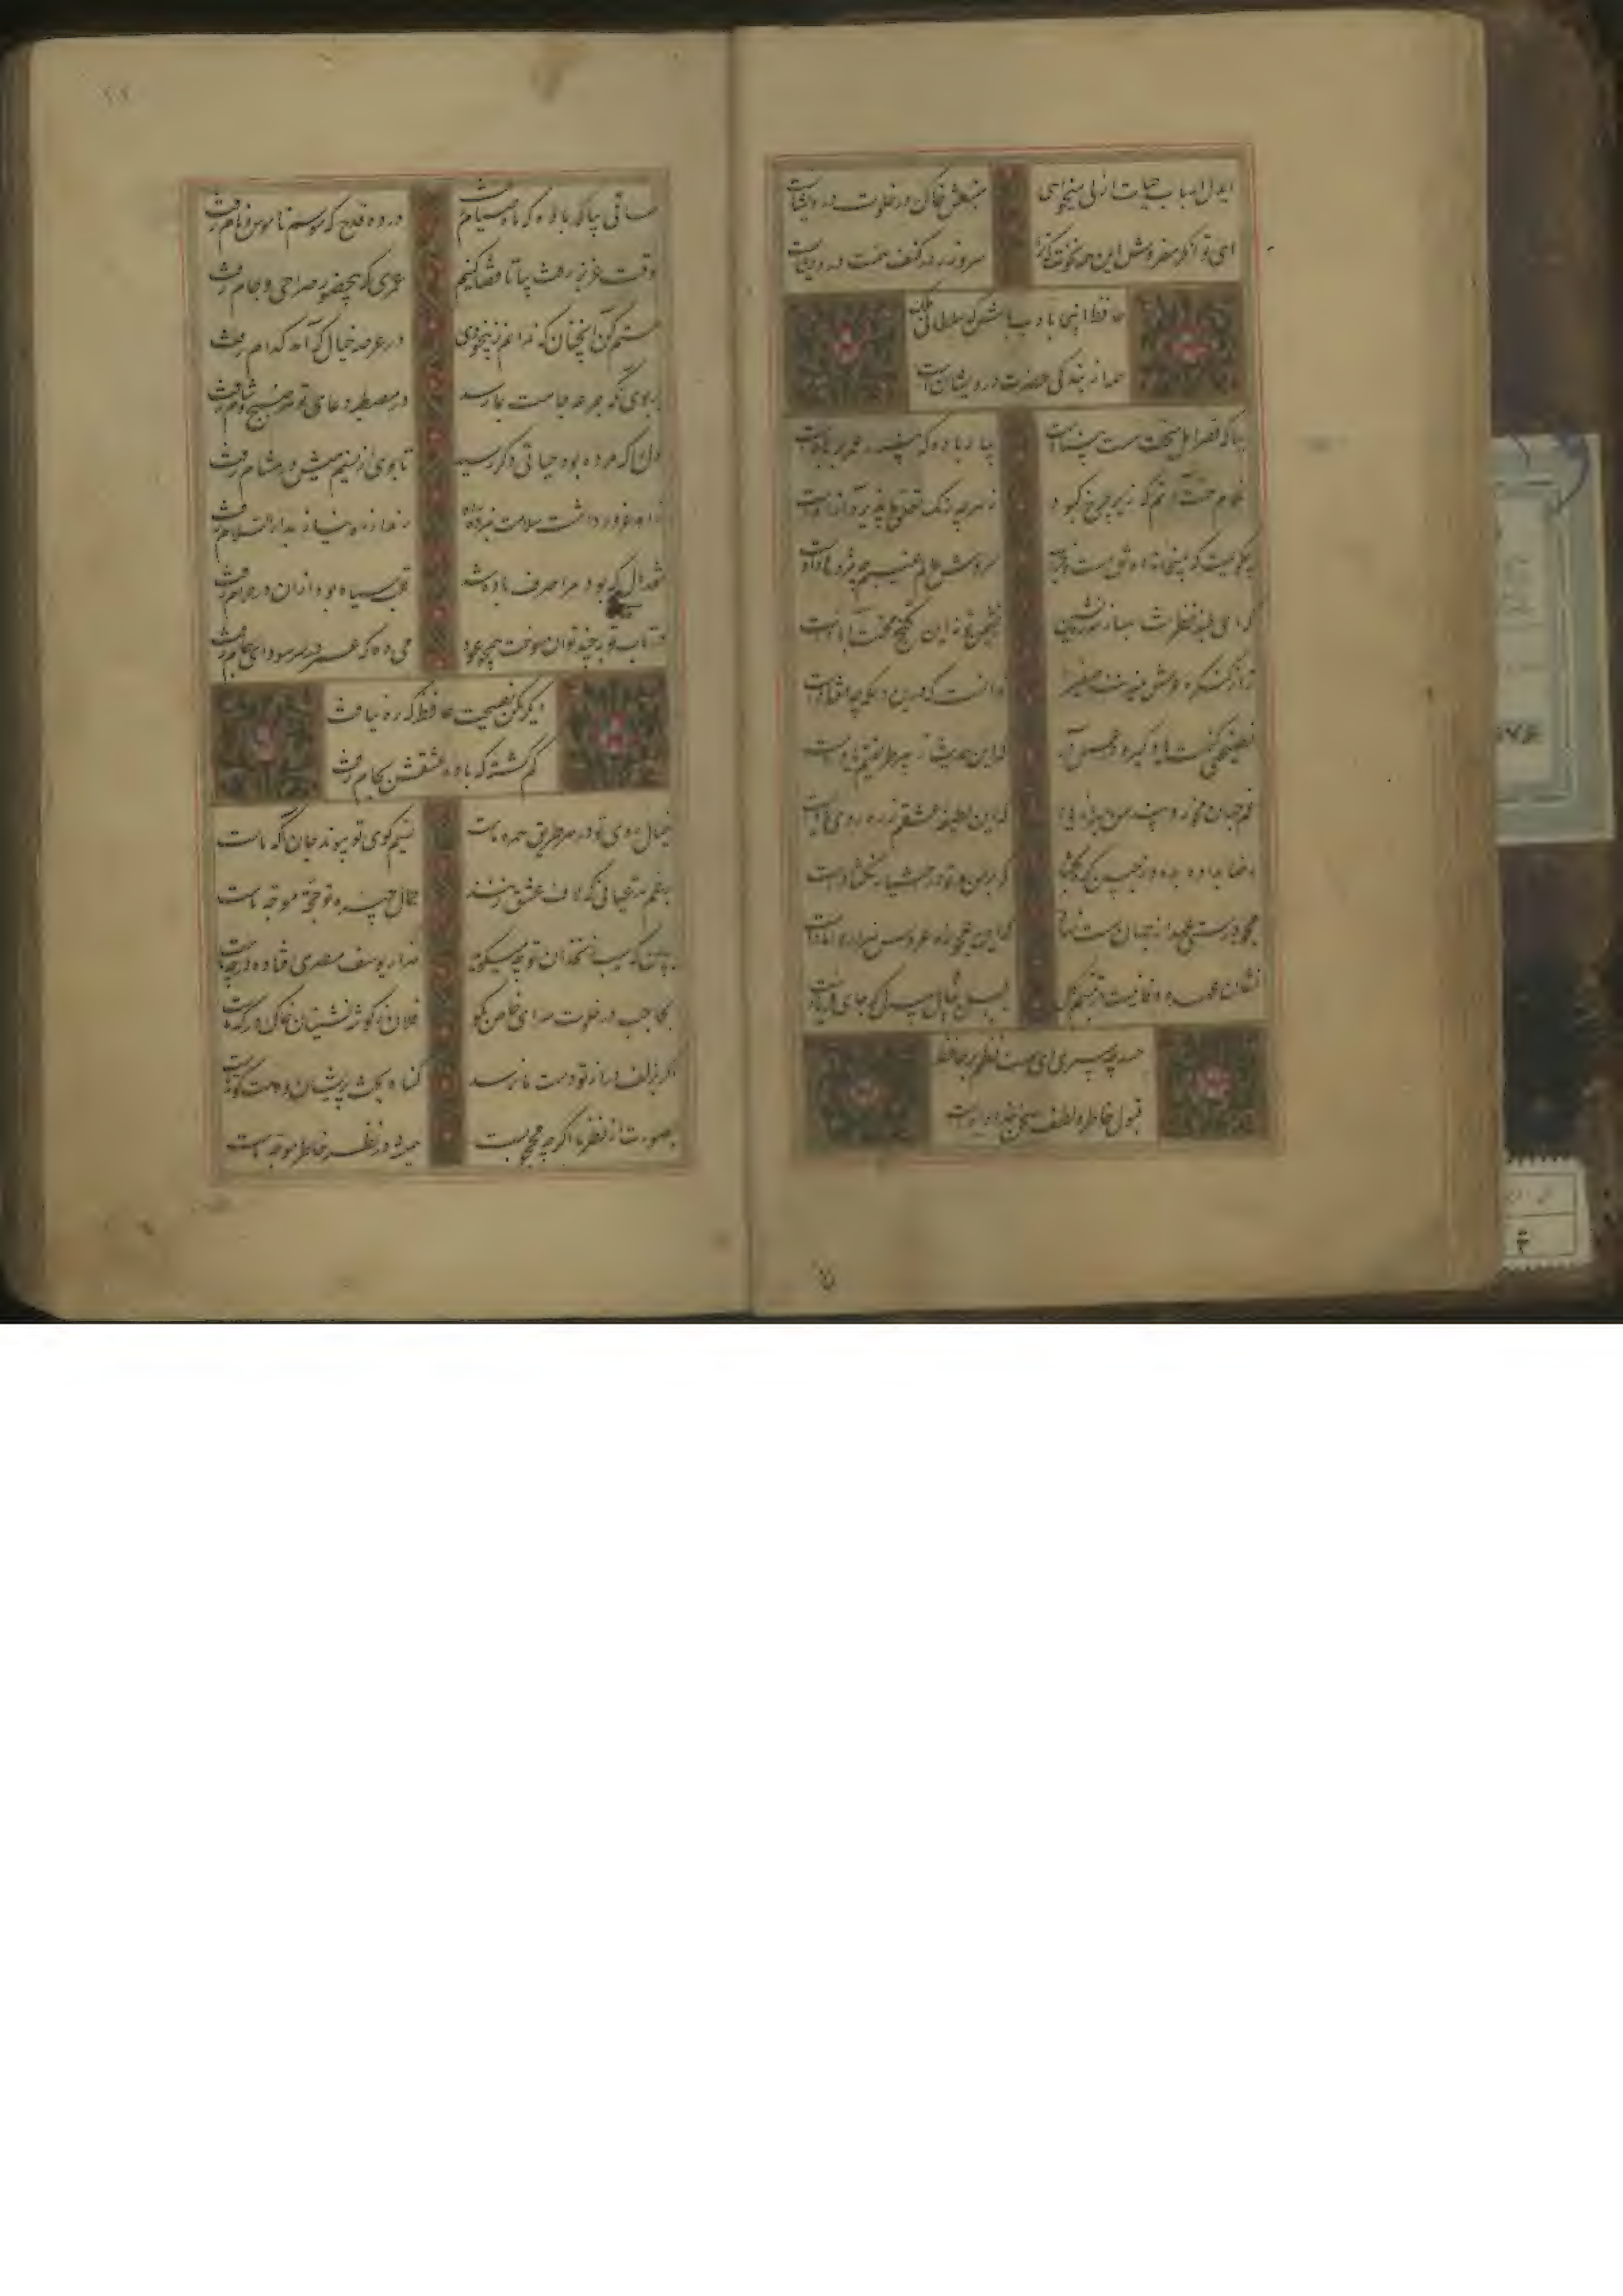 ایدل اسباب حیات ازلی میخواهی
منبعش خاک در خلوت درویشانست
ای توانگر مفروش این همه نخوت که ترا
سر و زر در کنف همت درویشانست
حافظ اینجا بادب باش که سلطانی و ملک
همه از بندگی حضرت درویشانست
بیا که قصر امل سخت سست بنیادست
بیار باده که بنیاد عمر بر بادست
غلام همت آنم که زیر چرخ کبود
ز هر چه رنگ تعلق پذیرد آزادست
چگویمت که بمیخانه دوش مست و خراب
سروش عالم غیبم چه مژدها دادست
که ای بلند نظر شاهباز سدره نشین
نشیمن تو نه این کنج محنت آبادست
ترا ز کنگره عرش میزنند صفیر
ندانمت که درین دامگه چه افتادست
نصیحتی کنمت یاد گیر و در عمل آر
که این حدیث ز پیر طریقتم یادست
غم جهان مخور و پند من مبر از یاد
که این لطیفه عشقم ز ره روی یادست
رضا بداده بده وز جبین گره بگشا
که بر من و تو در اختیار نگشادست
مجو درستی عهد از جهان سست نهاد
که این عجوزه عروس هزار دامادست
نشان عهد و وفا نیست در تبسم گل
بنال بلبل بیدل که جای فریادست
حسد چه میبری ای سست نظم بر حافظ
قبول خاطر و لطف سخن خدادادست
ساقی بیا که باده که ماه صیام رفت
در ده قدح که موسم ناموس و نام رفت
وقت عزیز رفت بیا تا قضا کنیم
عمری که بیحضور صراحی و جام رفت
مستم کن آنچنان که ندانم ز بیخودی
در عرصه خیال که آمد کدام رفت
بر بوی آنکه جرعه جامت بما رسد
در مصطبه دعای تو هر صبح و شام رفت
دل را که مرده بود حیاتی دگر رسید
تا بوی از نسیم میش در مشام رفت
زاهد غرور داشت سلامت نبرد راه
رند از ره نیاز بدار السلام رفت
نقد دلی که بود مرا صرف باده شد
قلب سیاه بود از آن در حرام رفت
در تاب توبه چند توان سوخت همچو عود
می ده که عمر در سر سودای خام رفت
دیگر مکن نصیحت حافظ که ره نیافت
گم گشته که باده عشقش بکام رفت
خیال روی تو در هر طریق همره ماست
نسیم کوی تو پیوند جان آگه ماست
برغم مدعیانی که لاف عشق زنند
جمال چهره تو حجت موجه ماست
ببین که سیب زنخدان تو چه میگوید
هزار یوسف مصری فتاده در چه ماست
بحاجب در خلوت سرای خاص بگو
فلان ز گوشه نشینان خاک درگه ماست
اگر بزلف دراز تو دست ما نرسد
گناه بخت پریشان و دست کوته ماست
بصورت از نظر ما اگر چه محجوبست
همیشه در نظر خاطر موجه ماست